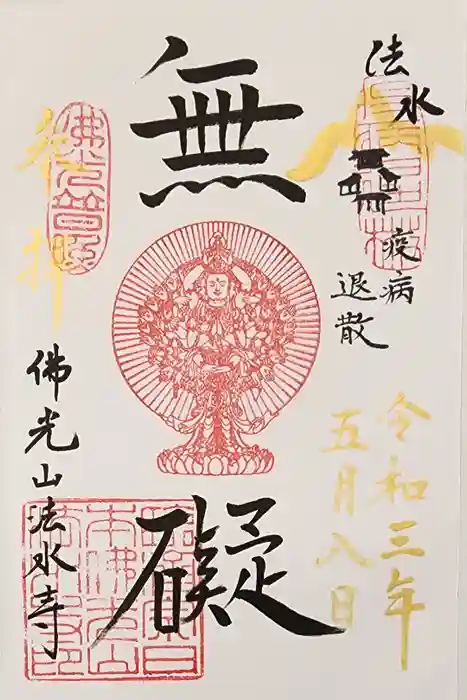 法水
疫病
退散
令和三年
五月八日
無
礙
奉拝
佛光普照
佛光山法水寺